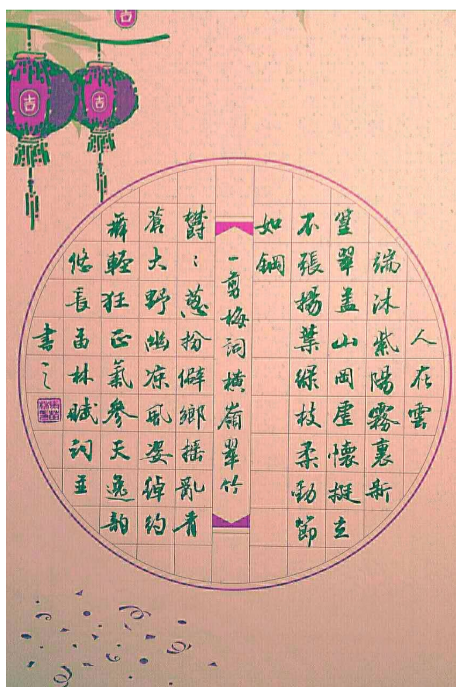 人在雲
端沐紫陽霧裏新
篁翠蓋山岡虛懷挺立
不張揚葉綠枝柔勁節
如鋼
一剪梅詞橫嶺翠竹
鬱〻蔥扮僻鄉搖亂青
蒼大野幽涼風姿綽約
舞輕狂正氣參天逸韻
悠長林賦詞並
書之
吉
吉
吉